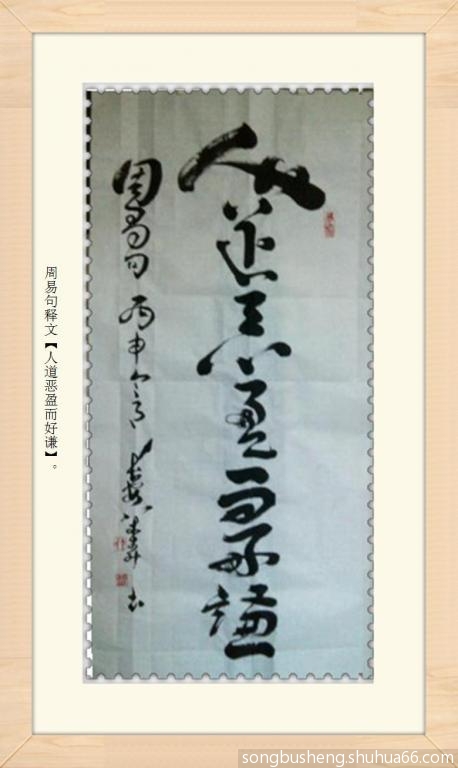 人道恶盈而好谦
周易句 丙申
周易句释文【人道恶盈而好谦】。
songbusheng.shuhua66.com